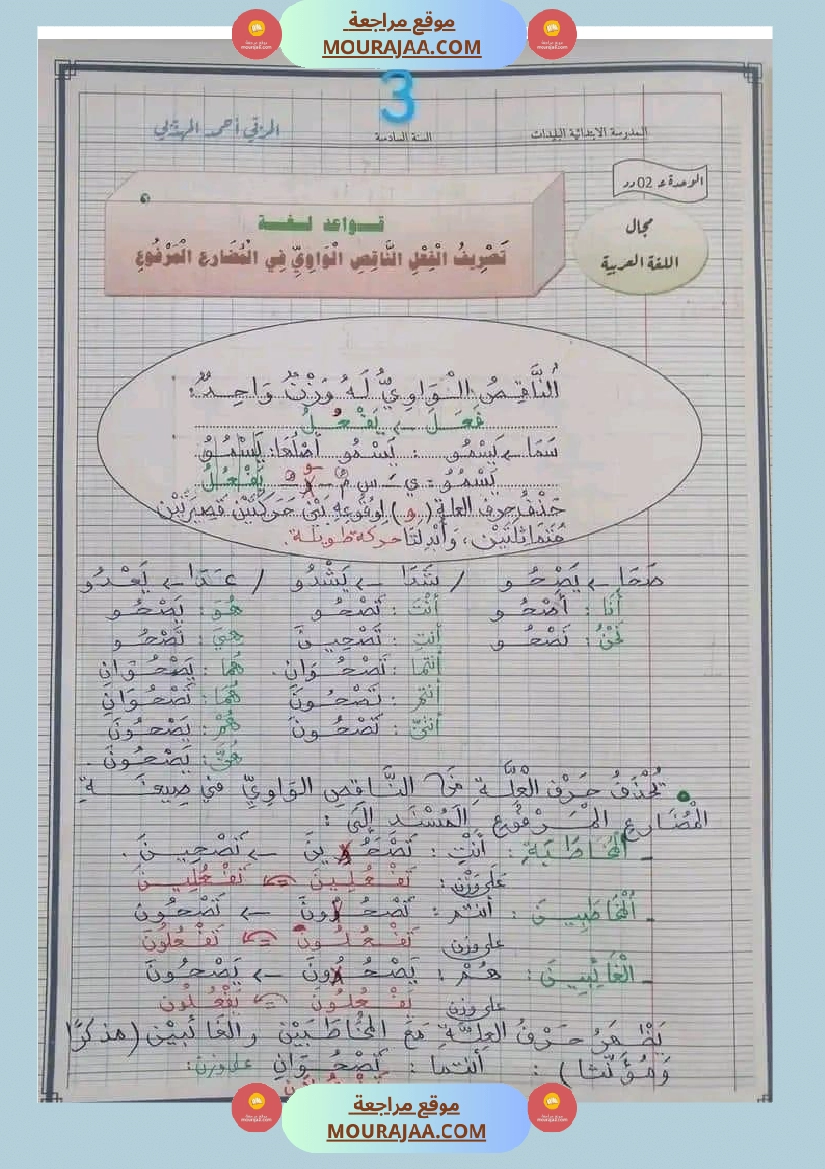 موقع مراجعة
MOURAJAA.COM
3
المدرسة الابتدائية البليدات
السنة السادسة
المرقي أحمد المهذبي
الوحدة عـ 02ـدد
مجال
اللغة العربية
قـواعد لـغـة
تَصْرِيفُ الْفِعْلِ النَّاقِصِ الْوَاوِيِّ فِي الْمُضَارِعِ الْمَرْفُوعِ
النَّاقِصُ الْوَاوِيُّ لَهُ وَزْنٌ وَاحِدٌ:
فَعَلَ ← يَفْعُلُ
سَمَا ← يَسْمُو : يَسْمُو أَصْلُهَا: يَسْمُوُ
يَسْمُوُ = يـَ سـ مُ و ُ = يَفْعُلُ
حَذْفُ حرف العلة (و) لِوُقُوعِهِ بَيْنَ حَرَكَتَيْنِ قَصِيرَتَيْنِ
مُتَمَاثِلَتَيْنِ، وَأُبْدِلَتَا حركة طويلة.
صَحَا ← يَصْحُو / شَدَا ← يَشْدُو / عَدَا ← يَعْدُو
أَنَا : أَصْحُو أَنْتَ : تَصْحُو هُوَ : يَصْحُو
نَحْنُ : نَصْحُو أَنْتِ : تَصْحِينَ هِيَ : تَصْحُو
أنتما : تَصْحُوَانِ . هُمَا : يَصْحُوَانِ
أنتم : تَصْحُونَ هُمَا : تَصْحُوَانِ
أنتنّ : تَصْحُونَ هُمْ : يَصْحُونَ
هُنَّ : يَصْحُونَ .
• يُحْذَفُ حَرْفُ الْعِلَّةِ مِنَ النَّاقِصِ الوَاوِيِّ في صِيغَةِ
الْمُضَارِعِ الْمَرْفُوعِ الْمُسْنَدِ إِلَى :
ـ الْمُخَاطَبَةِ : أَنْتِ : تَصْحُوِينَ ← تَصْحِينَ .
عَلَى وَزْنِ : تَفْعُلِينَ تَفْعُلِينَ
ـ الْمُخَاطَبِينَ : أنتم : تَصْحُوُونَ ← تَصْحُونَ
على وزن تَفْعُلُونَ تَفْعُلُونَ
ـ الْغَائِبِينَ : هُمْ : يَصْحُوُونَ ← يَصْحُونَ
على وزن يَفْعُلُونَ يَفْعُلُونَ
يَظْهَرُ حَرْفُ العِلَّةِ مَعَ المُخَاطَبَيْنِ والغَائِبَيْنِ (مذكرًا
وَمُؤَنَّثًا) : أنتما : تَصْحُوَانِ على وزن:
موقع مراجعة
MOURAJAA.COM